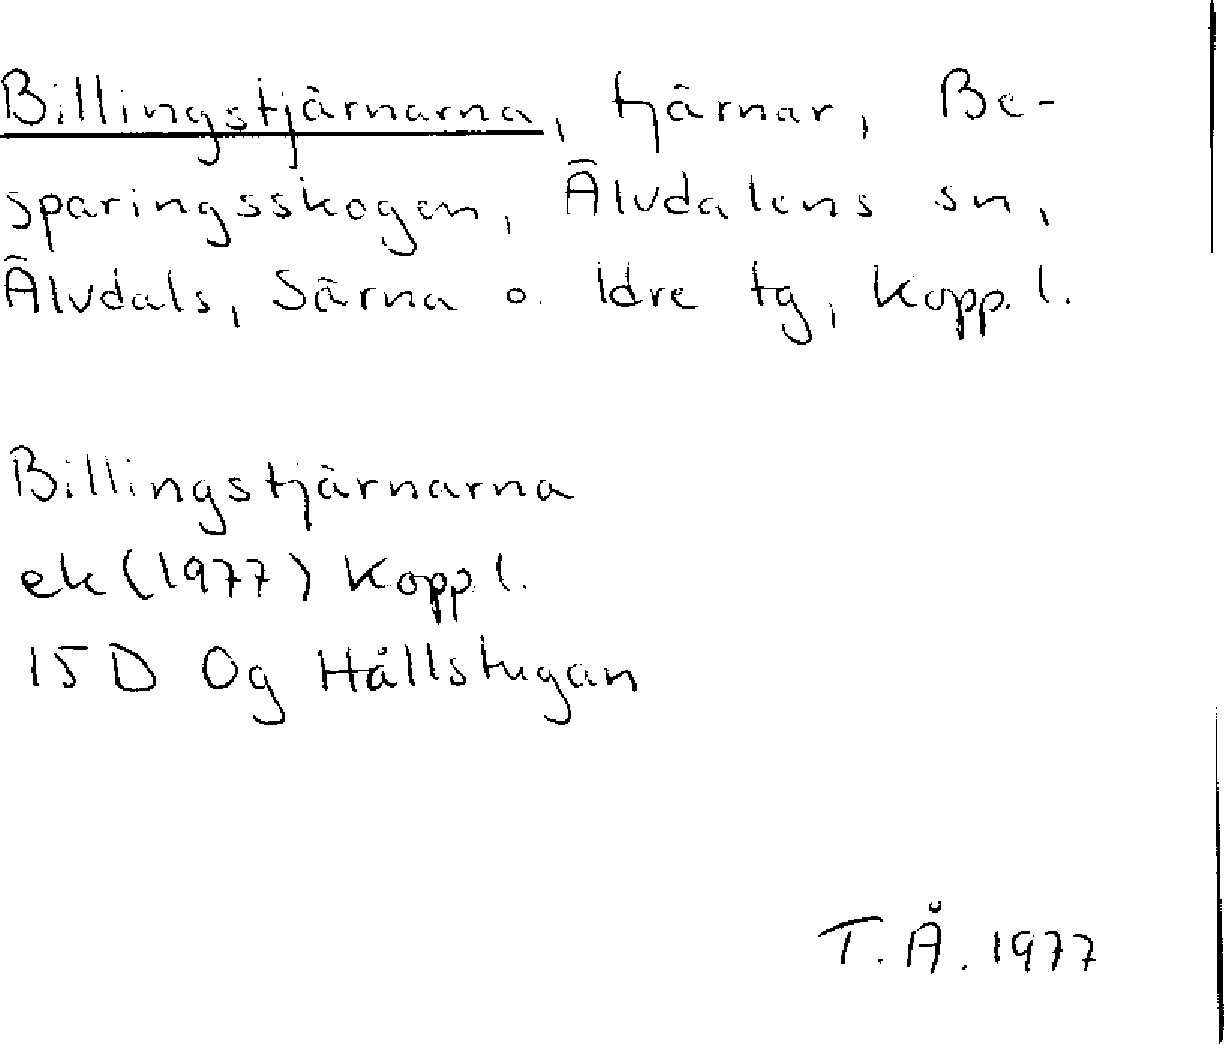 Billingstjärnarna, tjärnar, Be-
sparingsskogen, Älvdalens sn,
Älvdals, Särna o. Idre tg, Kopp. l.
Billingstjärnarna
ek (1977) Kopp l.
15 D 0g Hållstugan
T. Å. 1977